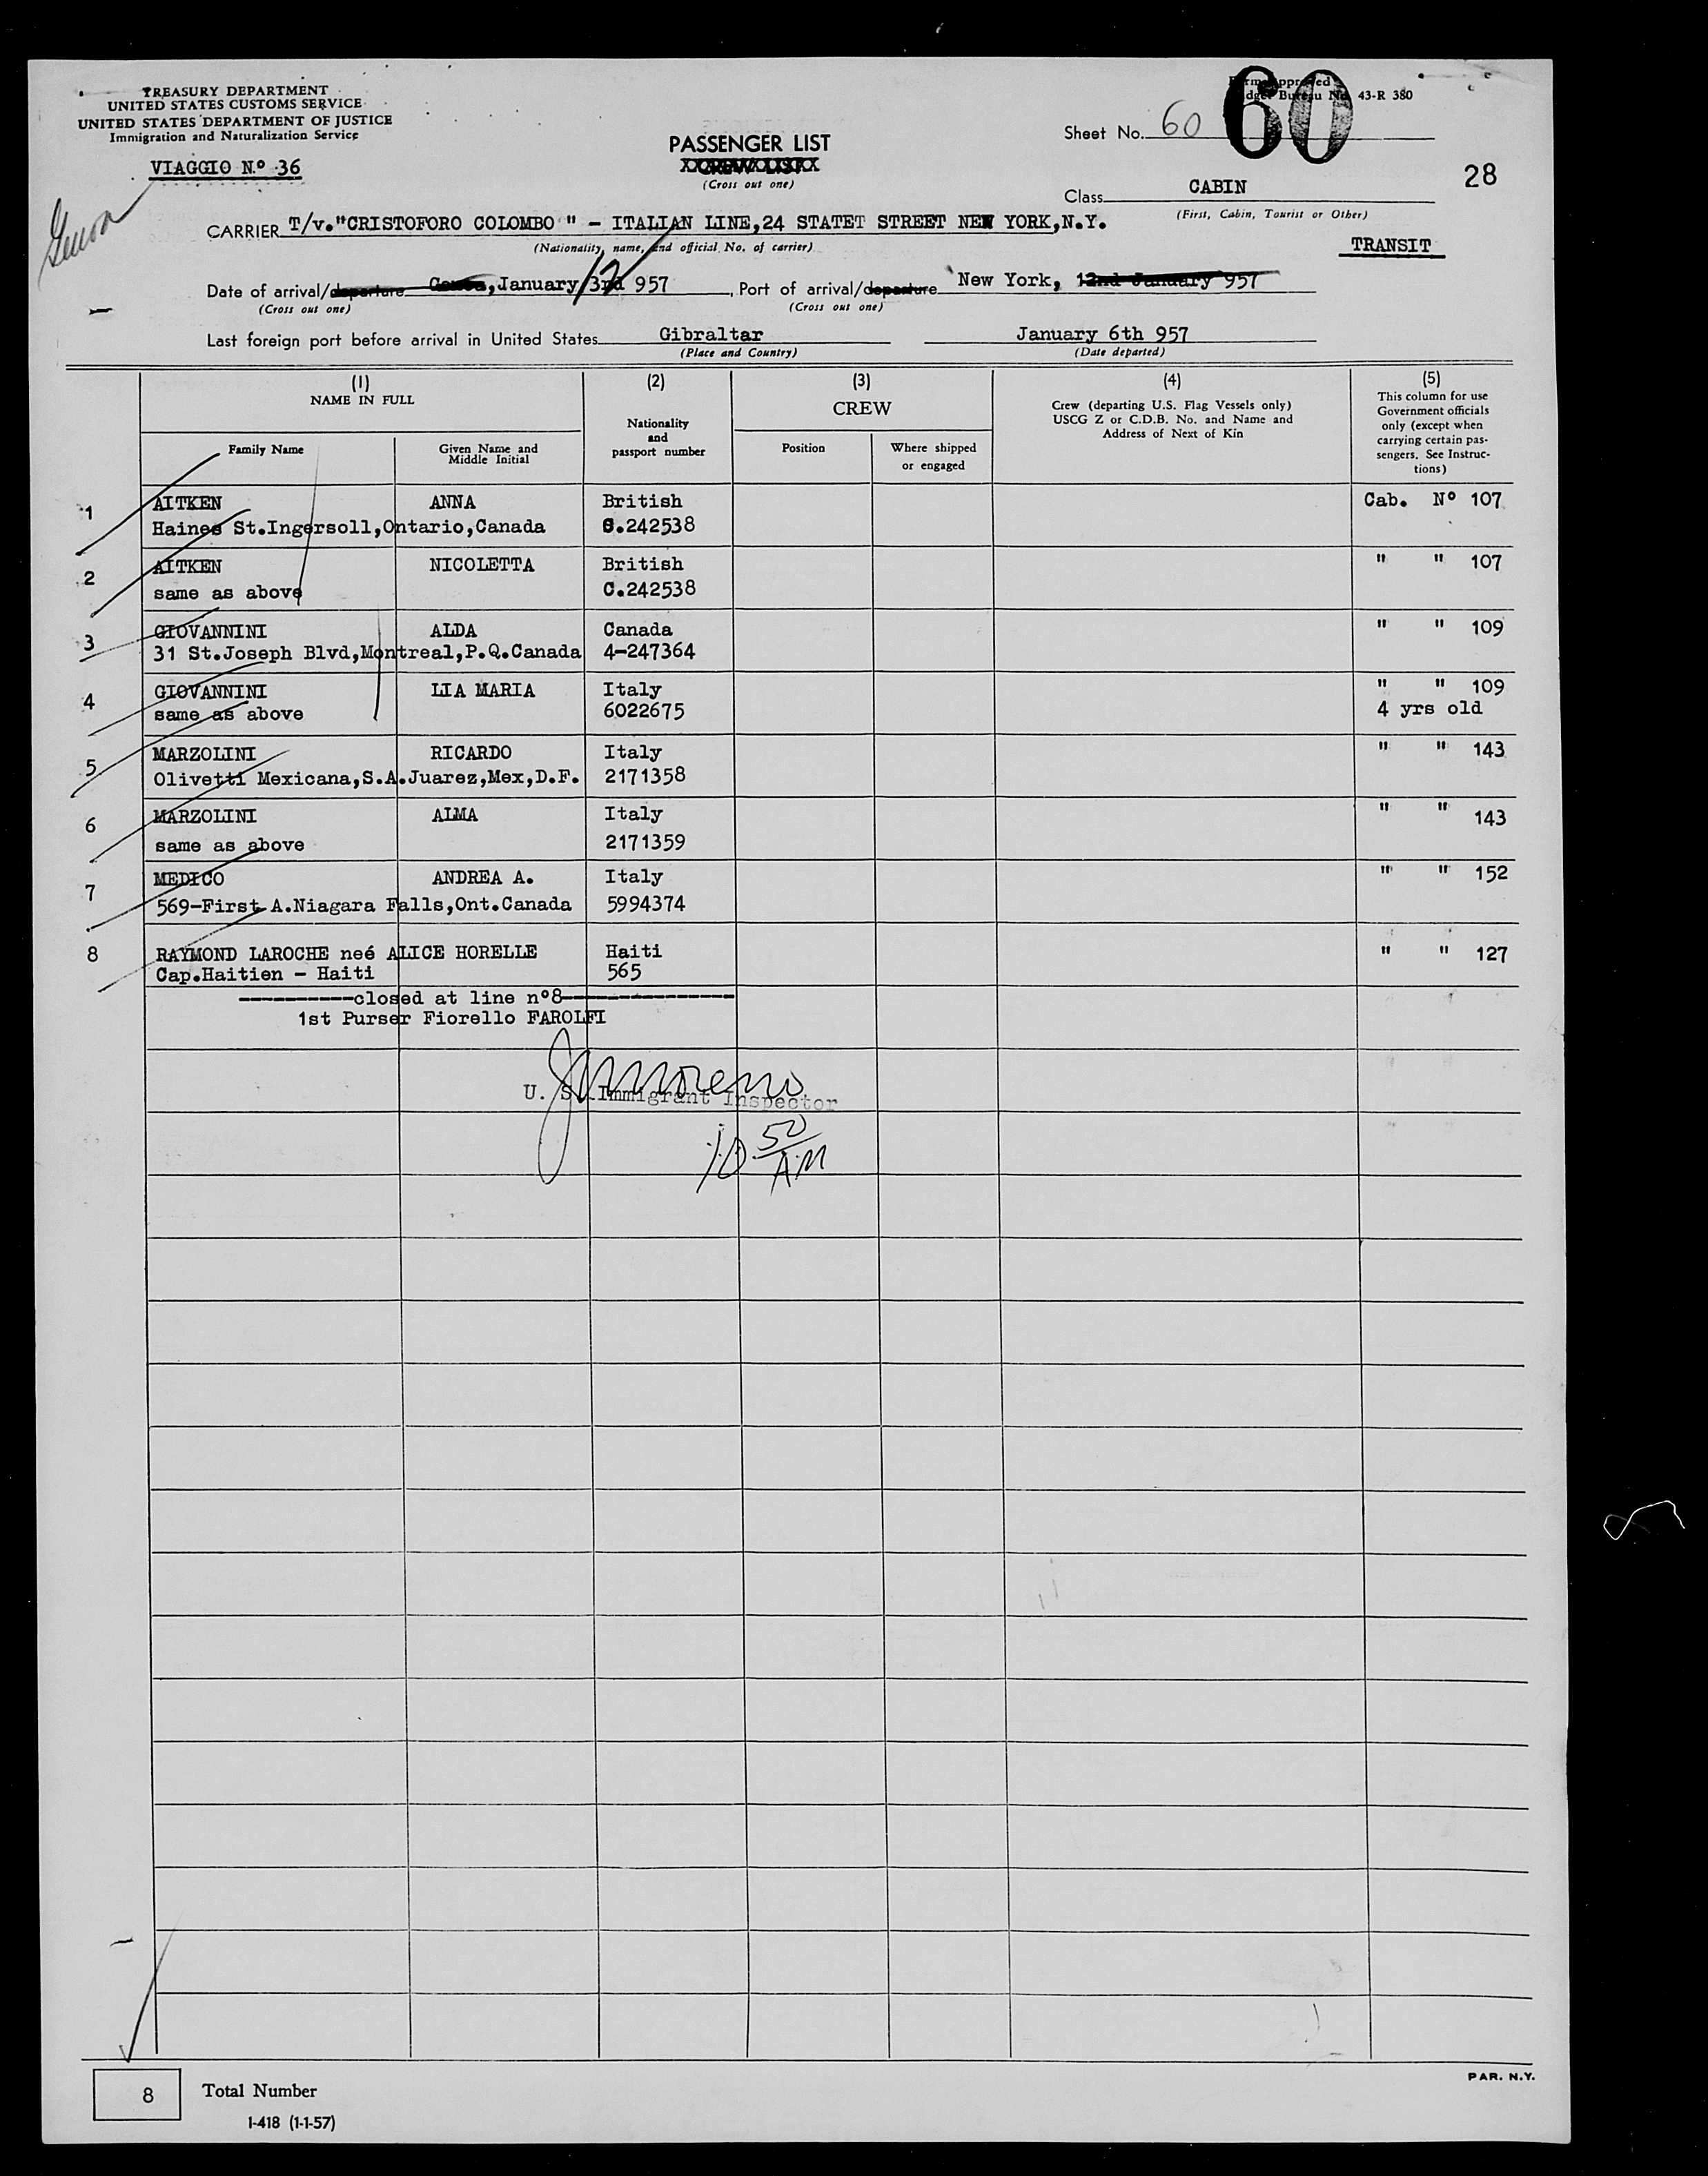 TREASURY DEPARTMENT
UNITED STATES CUSTOMS SERVICE
UNITED STATES DEPARTMENT OF JUSTICE
Immigration and Naturalization Service
VIAGGIO N.º 36
Genoa
Form approved
Budget Bureau No. 43-R 380
Sheet No. 60 60
PASSENGER LIST
CREW LIST
(Cross out one)
28
Class CABIN
(First, Cabin, Tourist or Other)
CARRIER T/v."CRISTOFORO COLOMBO " - ITALIAN LINE,24 STATET STREET NEW YORK,N.Y.
(Nationality, name, and official No. of carrier)
TRANSIT
Date of arrival/departure Genoa, January 3rd 957 12 , Port of arrival/departure New York, 12nd January 957
(Cross out one) (Cross out one)
Last foreign port before arrival in United States Gibraltar January 6th 957
(Place and Country) (Date departed)
(1) (2) (3) (4) (5)
NAME IN FULL
Family Name
Given Name and Middle Initial
Nationality and passport number
CREW
Position
Where shipped or engaged
Crew (departing U.S. Flag Vessels only)
USCG Z or C.D.B. No. and Name and
Address of Next of Kin
This column for use
Government officials
only (except when
carrying certain pas-
sengers. See Instruc-
tions)
1 AITKEN ANNA British Cab. Nº 107
Haines St.Ingersoll,Ontario,Canada C.242538
2 AITKEN NICOLETTA British " " 107
same as above C.242538
3 GIOVANNINI ALDA Canada " " 109
31 St.Joseph Blvd,Montreal,P.Q.Canada 4-247364
4 GIOVANNINI LIA MARIA Italy " " 109
same as above 6022675 4 yrs old
5 MARZOLINI RICARDO Italy " " 143
Olivetti Mexicana,S.A.Juarez,Mex,D.F. 2171358
6 MARZOLINI ALMA Italy " " 143
same as above 2171359
7 MEDICO ANDREA A. Italy " " 152
569-First A.Niagara Falls,Ont.Canada 5994374
8 RAYMOND LAROCHE neé ALICE HORELLE Haiti " " 127
Cap.Haitien - Haiti 565
----------closed at line nº8---------------
1st Purser Fiorello FAROLFI
U. S. Immigrant Inspector
10 50 AM
8 Total Number
I-418 (1-1-57)
PAR. N.Y.